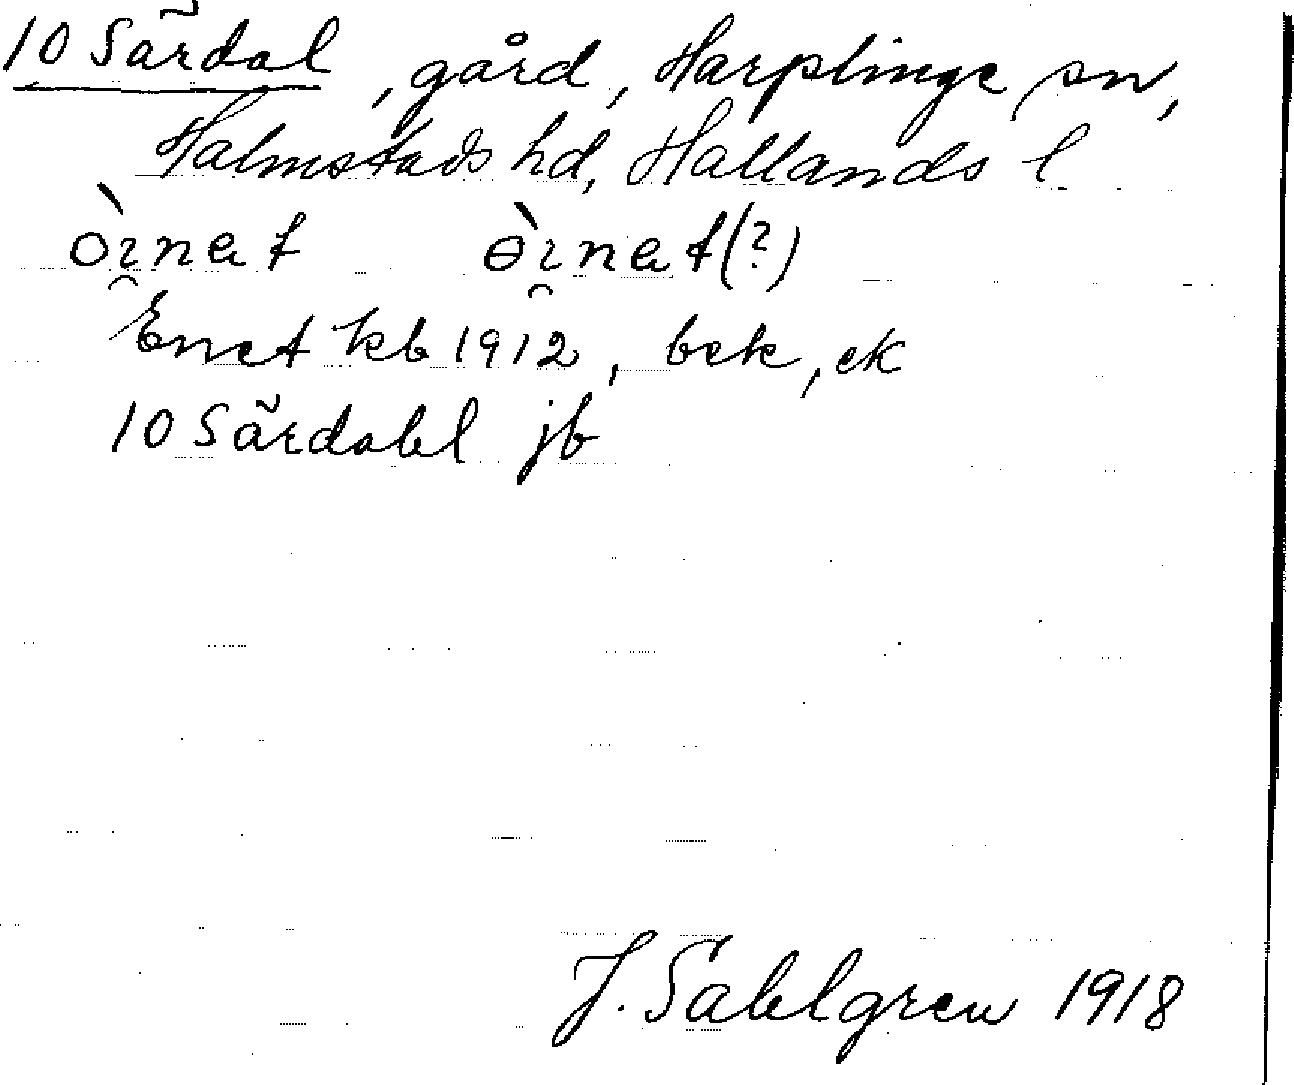 10 Särdal, gård, Harplinge sn,
Halmstads hd, Hallands l
òɿ̯nat ɵ̀ɿ̯nat(?)
Enet kb 1912, bek, ek
10 Särdahl jb
J. Sahlgren 1918